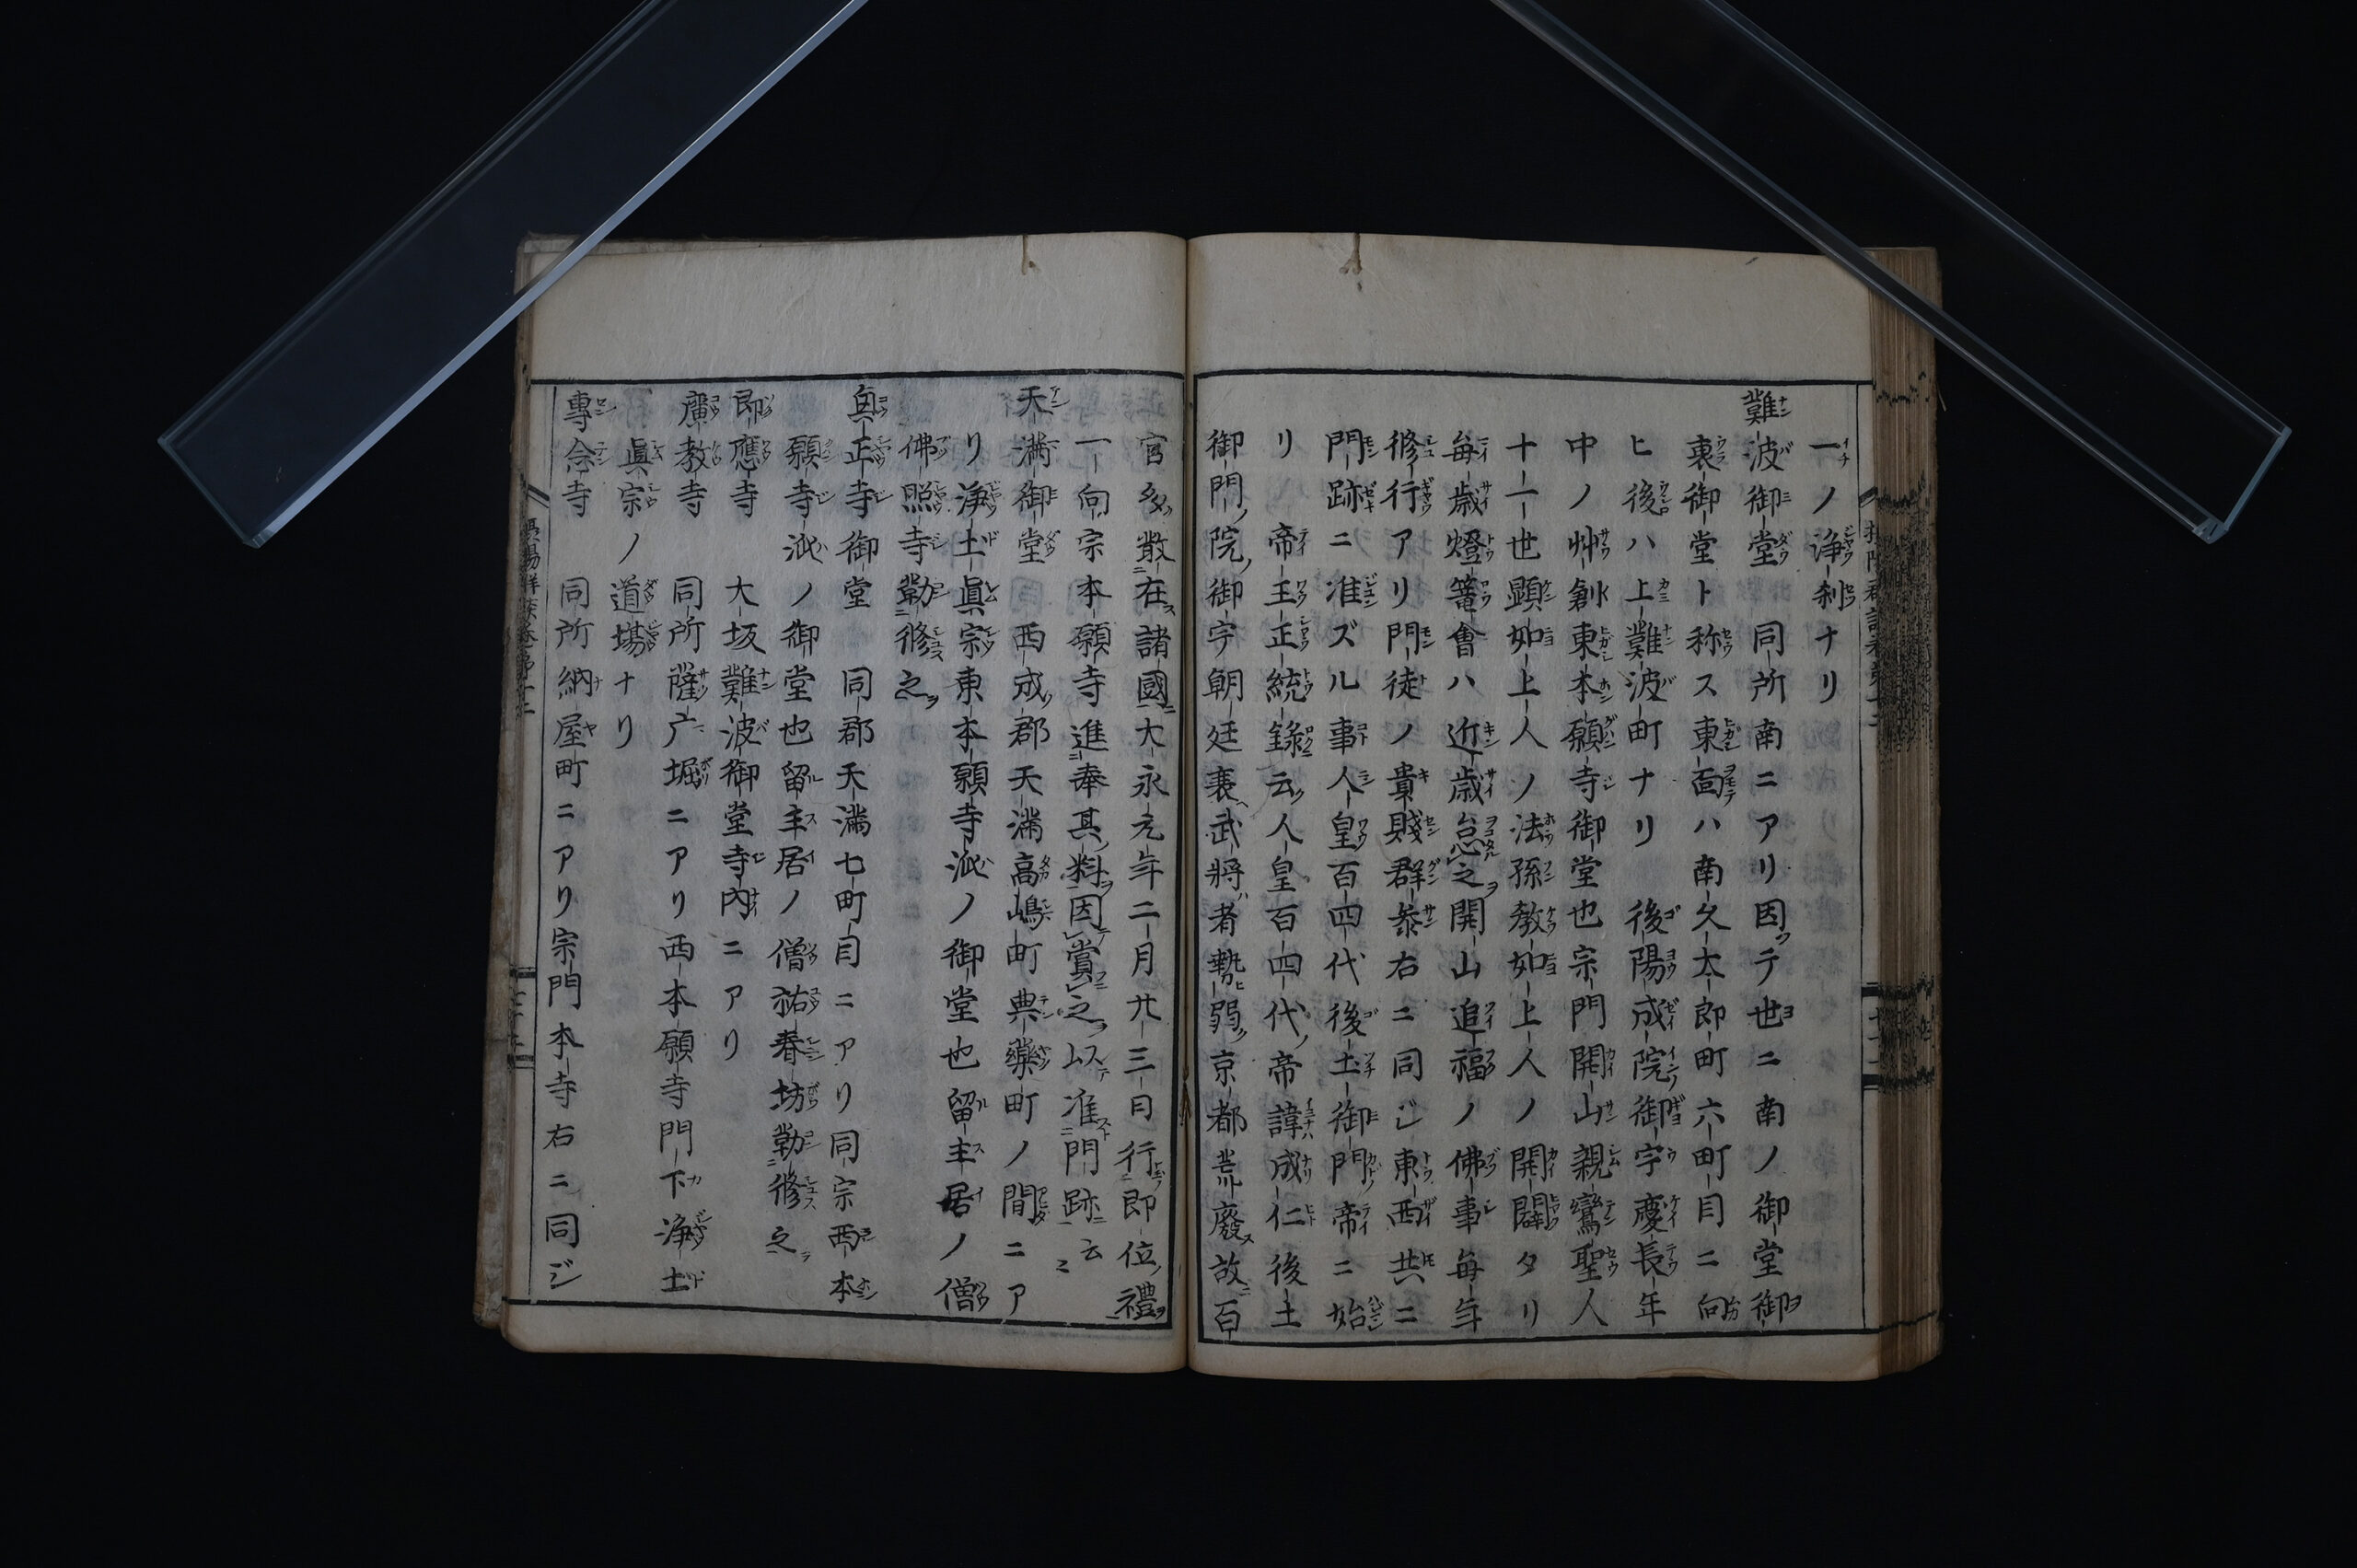 一ノ浄刹ナリ
難波御堂 同所南ニアリ因テ世ニ南ノ御堂御
裏御堂ト称ス東面ハ南久太郎町六町目ニ向
ヒ後ハ上難波町ナリ 後陽成院御宇慶長年
中ノ艸創東本願寺御堂也宗門開山親鸞聖人
十一世顕如上人ノ法孫教如上人ノ開闢タリ
毎歳燈篭會ハ近歳怠之開山追福ノ佛事毎年
修行アリ門徒ノ貴賤群参右ニ同ジ東西共ニ
門跡ニ准ズル事人皇百四代後土御門帝ニ始
リ 帝王正統録云人皇百四代帝諱成仁後土
御門院御宇朝廷衰武将者勢弱京都荒廢故百
官多散在諸國大永元年二月廿三日行即位禮
一向宗本願寺進奉其料因賞之以准門跡云云
天満御堂 西成郡天満高嶋町典藥町ノ間ニア
リ浄土眞宗東本願寺派ノ御堂也留主居ノ僧
佛照寺勤修之
眞正寺御堂 同郡天満七町目ニアリ同宗西本
願寺派ノ御堂也留主居ノ僧祐春坊勤修之
即應寺 大坂難波御堂寺内ニアリ
廣教寺 同所薩广堀ニアリ西本願寺門下浄土
眞宗ノ道場ナリ
專念寺 同所納屋町ニアリ宗門本寺右ニ同ジ